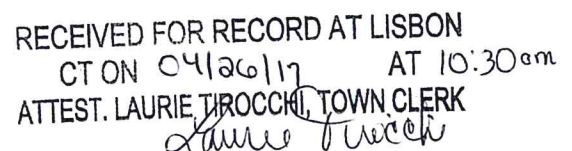 RECEIVED FOR RECORD AT LISBON
CT ON 04/26/17 AT 10:30am
ATTEST. LAURIE TIROCCHI, TOWN CLERK
Laurie Tirocchi